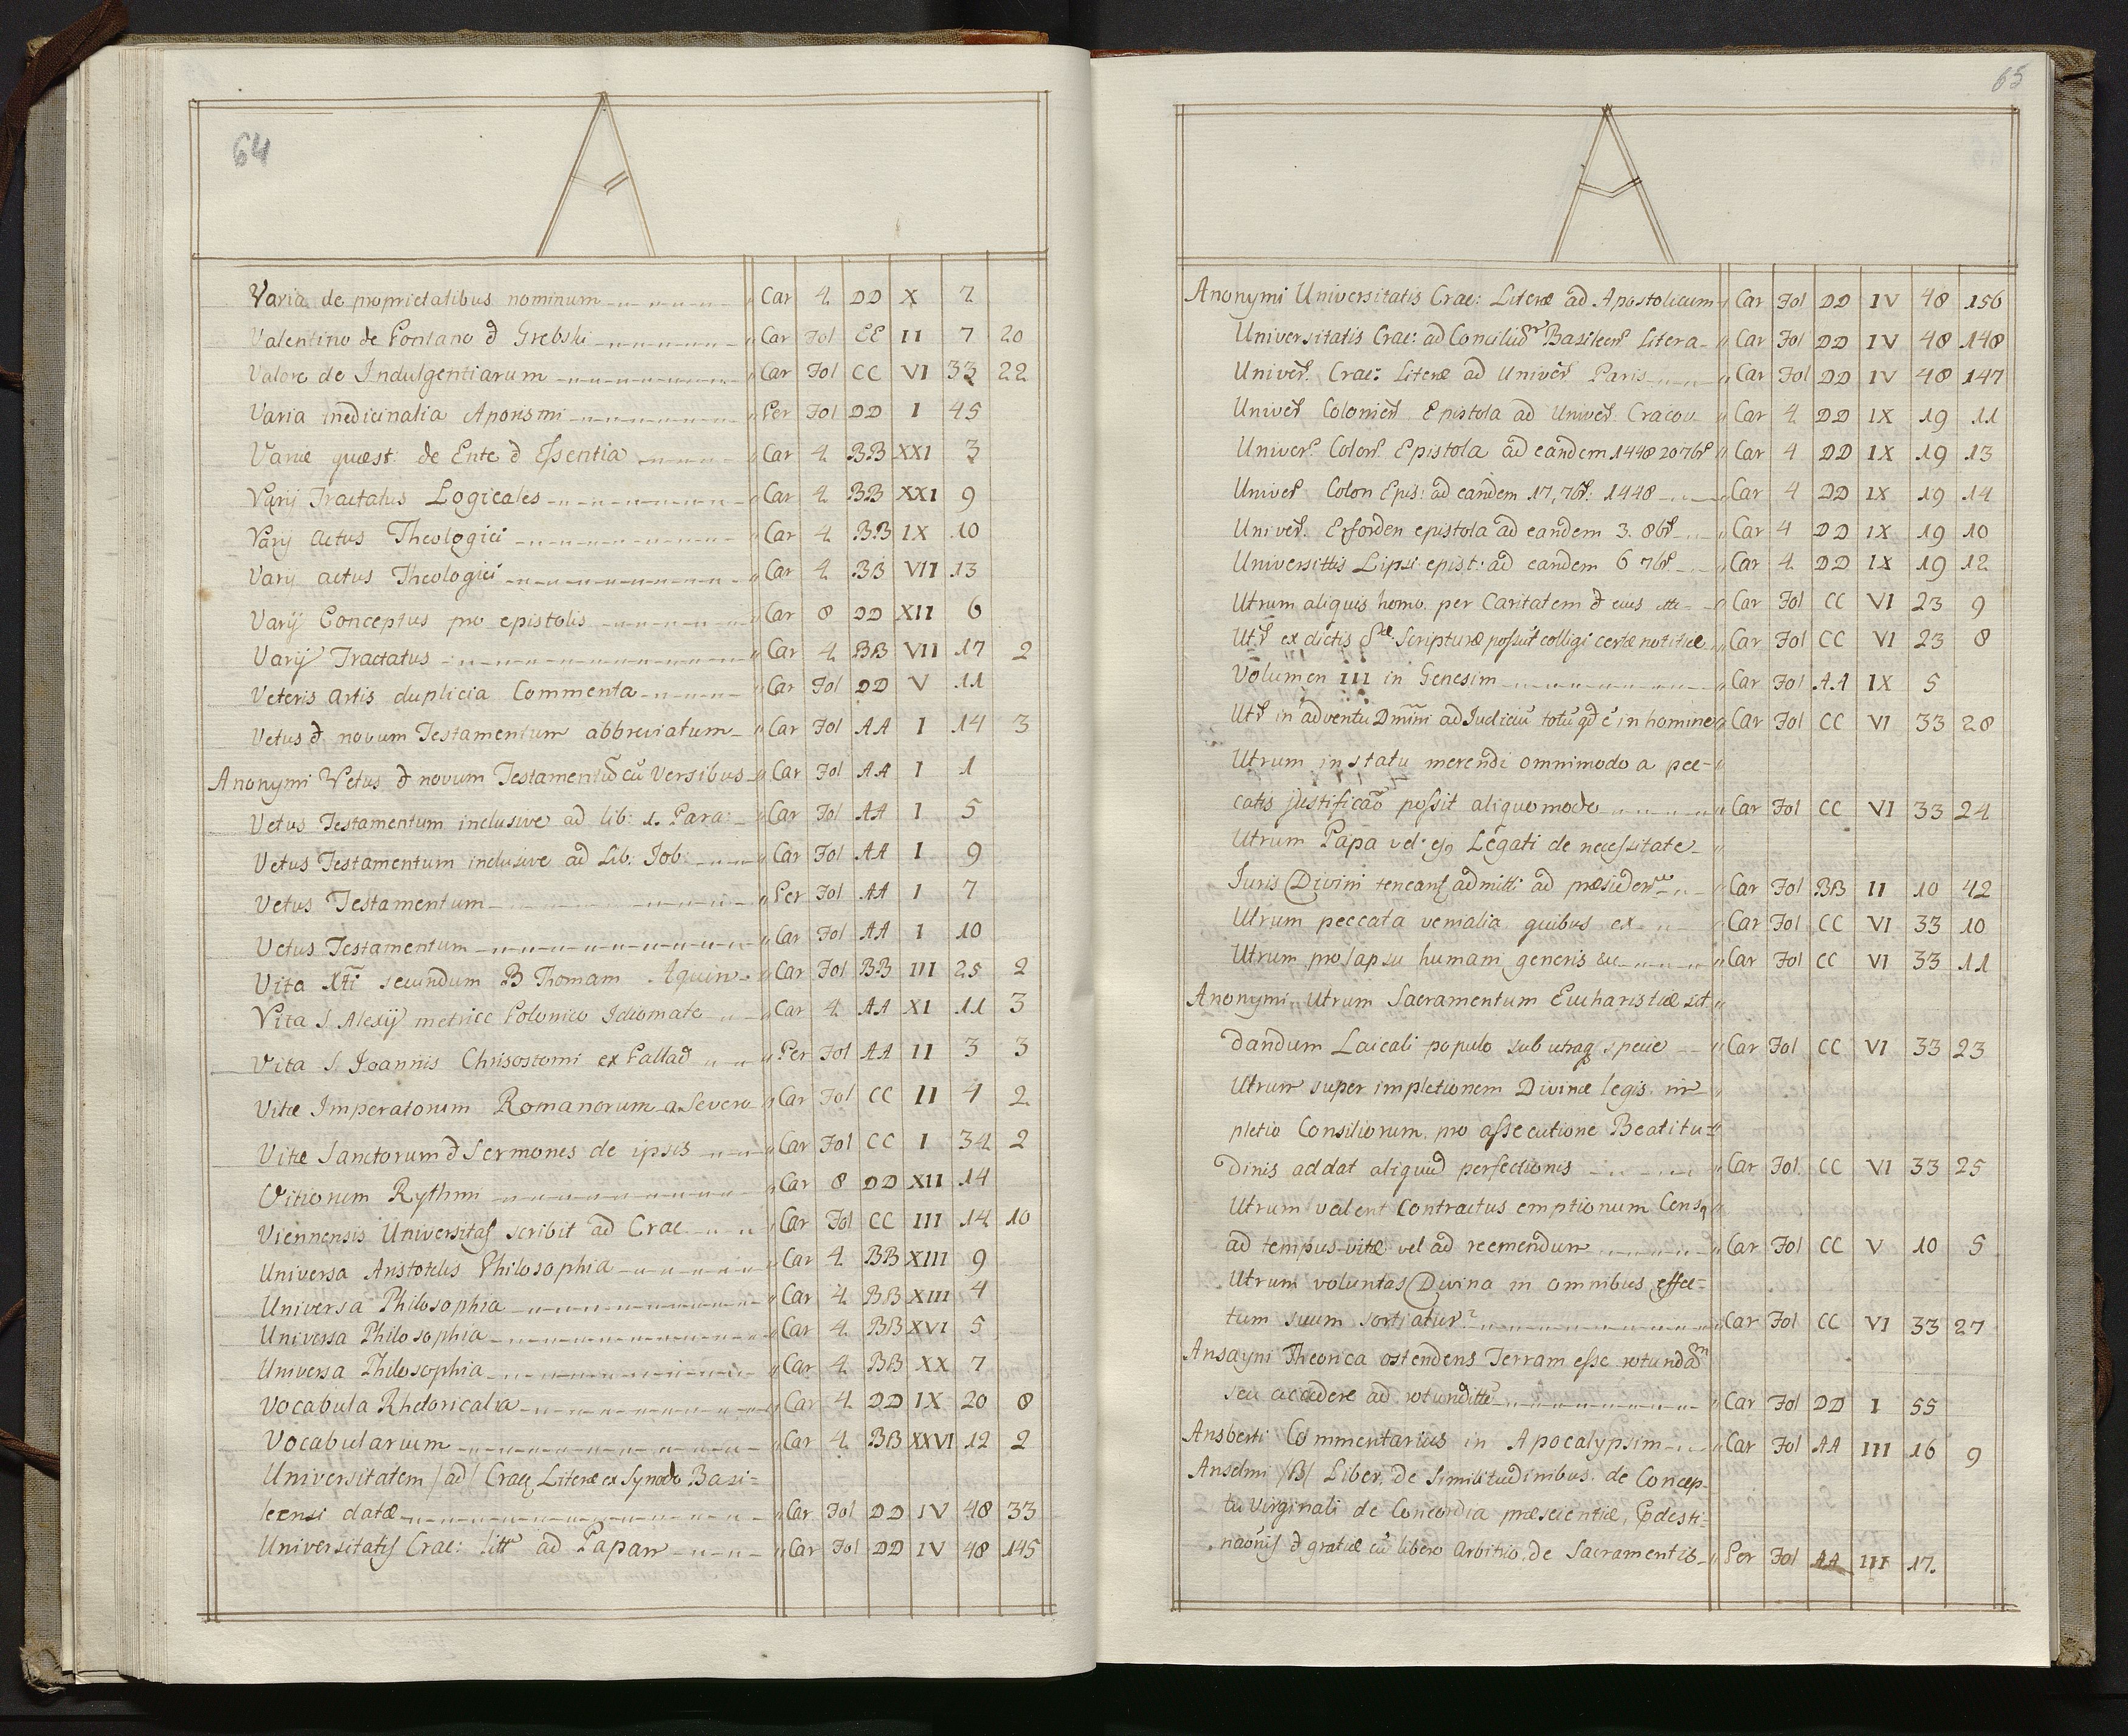 64
A
Varia de proprietatibus nominum " Car 4 DD X 7
Valentino de Fontano & Grebski " Car Fol EE II 7 20
Valore de Indulgentiarum " Car Fol CC VI 33 22
Varia medicinalia Aporismi " Per Fol DD I 45
Variæ quæst: de Ente & Essentia " Car 4 BB XXI 3
Varij Tractatus Logicales " Car 4 BB XXI 9
Varij Actus Theologici " Car 4 BB IX 10
Varij actus Theologici " Car 4 BB VII 13
Varij Conceptus pro epistolis " Car 8 DD XII 6
Varij Tractatus " Car 4 BB VII 17 2
Veteris artis duplicia Commenta " Car Fol DD V 11
Vetus & novum Testamentum abbreviatum " Car Fol AA I 14 3
Anonymi Vetus & novum Testamentū cū Versibus " Car Fol AA I 1
Vetus Testamentum inclusive ad lib: 1. Para: " Car Fol AA I 5
Vetus Testamentum inclusive ad Lib: Job: " Car Fol AA I 9
Vetus Testamentum " Per Fol AA I 7
Vetus Testamentum " Car Fol AA I 10
Vita Xti secundum B Thomam Aquin. " Car Fol BB III 25 2
Vita S Alexij metrice Polonico Idiomate " Car 4 AA XI 11 3
Vita S. Joannis Chrisostomi ex Pallad " Per Fol AA II 3 3
Vitæ Imperatorum Romanorum a Severo " Car Fol CC II 4 2
Vitæ Sanctorum & Sermones de ipsis " Car Fol CC I 34 2
Vitiorum Rythmi " Car 8 DD XII 14
Viennensis Universitas scribit ad Crac " Car Fol CC III 14 10
Universa Aristotelis Philosophia " Car 4 BB XIII 9
Universa Philosophia " Car 4 BB XIII 4
Universa Philosophia " Car 4 BB XVI 5
Universa Philosophia " Car 4 BB XX 7
Vocabula Rhetoricalia " Car 4 DD IX 20 8
Vocabularium " Car 4 BB XXVI 12 2
Universitatem /ad/ Crac Literæ ex Synodo Basi=
leensi datæ " Car Fol DD IV 48 33
Universitatis Crac: litt ad Papam " Car Fol DD IV 48 145
65
A
Anonymi Universitatis Crac: Literæ ad Apostolicum " Car Fol DD IV 48 156
Universitatis Crac: ad Conciliū Basileen Litera " Car Fol DD IV 48 148
Univer. Crac: Literæ ad Univer Paris " Car Fol DD IV 48 147
Univer Colonien Epistola ad Univer Cracov " Car 4 DD IX 19 11
Univer Colon Epistola ad eandem 1448 20 7br " Car 4 DD IX 19 13
Univer Colon Epis: ad eandem 17, 7br: 1448 " Car 4 DD IX 19 14
Univer. Erforden epistola ad eandem 3. 8br " Car 4 DD IX 19 10
Universittis Lipsi epist: ad eandem 6 7br " Car 4 DD IX 19 12
Utrum aliquis homo per Caritatem & eius " Car Fol CC VI 23 9
Utr ex dictis Sæ Scripturæ possūt colligi certæ notitiæ " Car Fol CC VI 23 8
Volumen III in Genesim " Car Fol AA IX 5
Utr in adventu Dnni ad Judiciū totū qd ē in homine " Car Fol CC VI 33 28
Utrum in statu merendi omnimodo a pec- "
catis justificaō possit aliquo modo " Car Fol CC VI 33 24
Utrum Papa vel Legati de necessitate "
Juris Divini teneant admitti ad præsiden " Car Fol BB II 10 42
Utrum peccata venialia quibus ex " Car Fol CC VI 33 10
Utrum pro lapsu humani generis &c " Car Fol CC VI 33 11
Anonymi Utrum Sacramentum Eucharistiæ sit "
dandum Laicali populo sub utraq specie " Car Fol CC VI 33 23
Utrum super impletionem Divinæ legis im "
pletio Consiliorum pro assecutione Beatitu= "
dinis addat aliquid perfectionis " Car Fol CC VI 33 25
Utrum valent Contractus emptionum Cens "
ad tempus vitæ vel ad reemendum " Car Fol CC V 10 5
Utrum voluntas Divina in omnibus effec=
tum suum sortiatur? " Car Fol CC VI 33 27
Ansayni Theorica ostendens Terram esse rotundam
seu accedere ad rotunditte " Car Fol DD I 55
Ansberti Commentarius in Apocalypsim " Car Fol AA III 16 9
Anselmi /B/ Liber, de Similitudinibus. de Concep-
tu Virginali de Concordia præscientiæ, Pdesti=
naōnis & gratiæ cū libero arbitrio, de Sacramentis " Per Fol AA III 17.